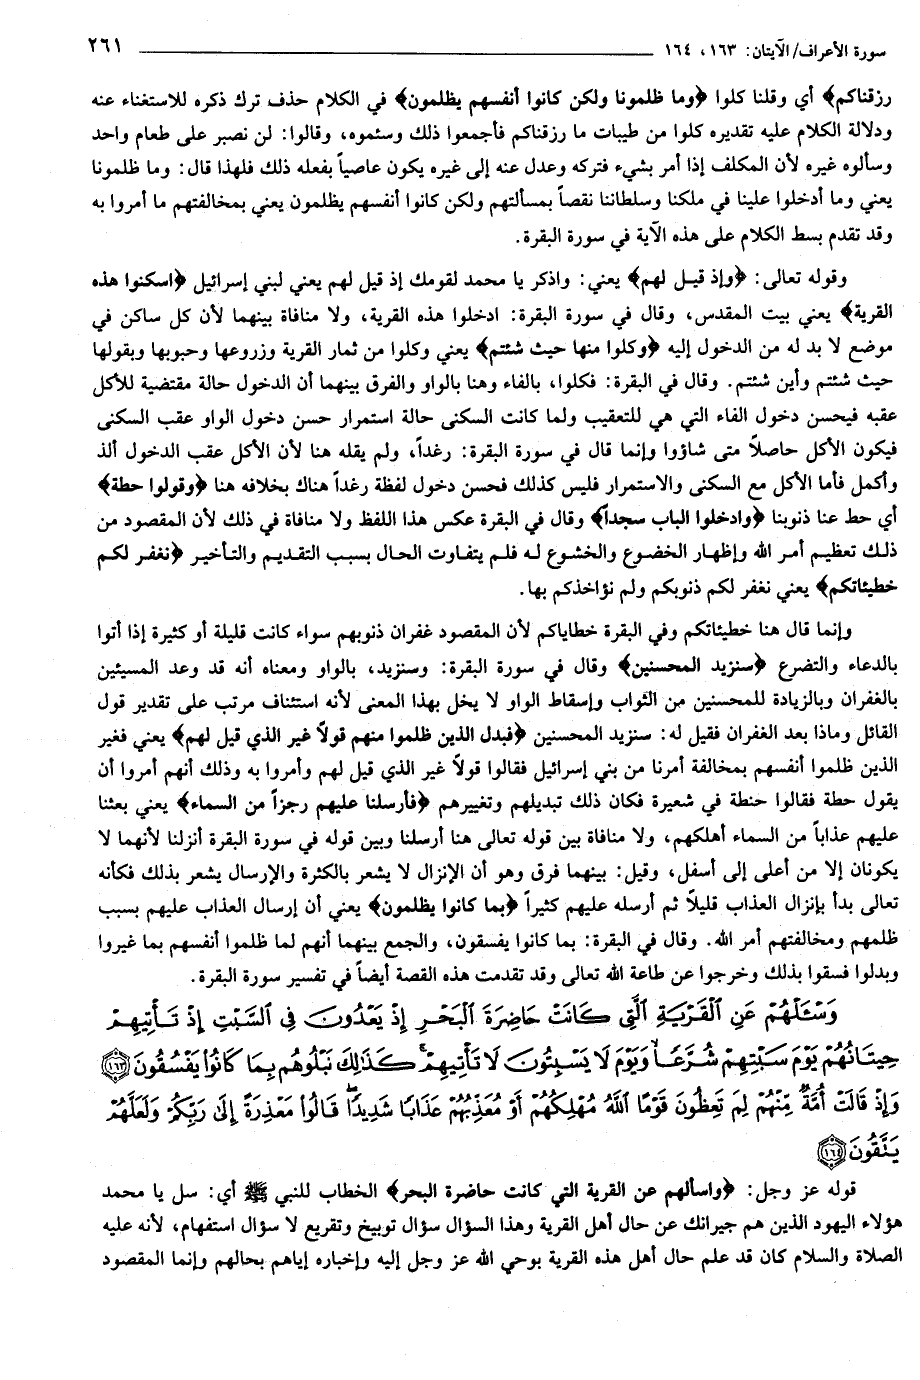 سورة الأعراف/الآيتان: ١٦٣، ١٦٤ ٢٦١
رزقناكم﴾ أي وقلنا كلوا ﴿وما ظلمونا ولكن كانوا أنفسهم يظلمون﴾ في الكلام حذف ترك ذكره للاستغناء عنه
ودلالة الكلام عليه تقديره كلوا من طيبات ما رزقناكم فأجمعوا ذلك وسئموه، وقالوا: لن نصبر على طعام واحد
وسألوه غيره لأن المكلف إذا أمر بشيء فتركه وعدل عنه إلى غيره يكون عاصياً بفعله ذلك فلهذا قال: وما ظلمونا
يعني وما أدخلوا علينا في ملكنا وسلطاننا نقصاً بمسألتهم ولكن كانوا أنفسهم يظلمون يعني بمخالفتهم ما أمروا به
وقد تقدم بسط الكلام على هذه الآية في سورة البقرة.
وقوله تعالى: ﴿وإذ قيل لهم﴾ يعني: واذكر يا محمد لقومك إذ قيل لهم يعني لبني إسرائيل ﴿اسكنوا هذه
القرية﴾ يعني بيت المقدس، وقال في سورة البقرة: ادخلوا هذه القرية، ولا منافاة بينهما لأن كل ساكن في
موضع لا بد له من الدخول إليه ﴿وكلوا منها حيث شئتم﴾ يعني وكلوا من ثمار القرية وزروعها وحبوبها وبقولها
حيث شئتم وأين شئتم. وقال في البقرة: فكلوا، بالفاء وهنا بالواو والفرق بينهما أن الدخول حالة مقتضية للأكل
عقبه فيحسن دخول الفاء التي هي للتعقيب ولما كانت السكنى حالة استمرار حسن دخول الواو عقب السكنى
فيكون الأكل حاصلاً متى شاؤوا وإنما قال في سورة البقرة: رغداً، ولم يقله هنا لأن الأكل عقب الدخول ألذ
وأكمل فأما الأكل مع السكنى والاستمرار فليس كذلك فحسن دخول لفظة رغداً هناك بخلافه هنا ﴿وقولوا حطة﴾
أي حط عنا ذنوبنا ﴿وادخلوا الباب سجداً﴾ وقال في البقرة عكس هذا اللفظ ولا منافاة في ذلك لأن المقصود من
ذلك تعظيم أمر الله وإظهار الخضوع والخشوع له فلم يتفاوت الحال بسبب التقديم والتأخير ﴿نغفر لكم
خطيئاتكم﴾ يعني نغفر لكم ذنوبكم ولم نؤاخذكم بها.
وإنما قال هنا خطيئاتكم وفي البقرة خطاياكم لأن المقصود غفران ذنوبهم سواء كانت قليلة أو كثيرة إذا أتوا
بالدعاء والتضرع ﴿سنزيد المحسنين﴾ وقال في سورة البقرة: وسنزيد، بالواو ومعناه أنه قد وعد المسيئين
بالغفران وبالزيادة للمحسنين من الثواب وإسقاط الواو لا يخل بهذا المعنى لأنه استئناف مرتب على تقدير قول
القائل وماذا بعد الغفران فقيل له: سنزيد المحسنين ﴿فبدل الذين ظلموا منهم قولاً غير الذي قيل لهم﴾ يعني فغير
الذين ظلموا أنفسهم بمخالفة أمرنا من بني إسرائيل فقالوا قولاً غير الذي قيل لهم وأمروا به وذلك أنهم أمروا أن
يقول حطة فقالوا حنطة في شعيرة فكان ذلك تبديلهم وتغييرهم ﴿فأرسلنا عليهم رجزاً من السماء﴾ يعني بعثنا
عليهم عذاباً من السماء أهلكهم، ولا منافاة بين قوله تعالى هنا أرسلنا وبين قوله في سورة البقرة أنزلنا لأنهما لا
يكونان إلا من أعلى إلى أسفل، وقيل: بينهما فرق وهو أن الإنزال لا يشعر بالكثرة والإرسال يشعر بذلك فكأنه
تعالى بدأ بإنزال العذاب قليلاً ثم أرسله عليهم كثيراً ﴿بما كانوا يظلمون﴾ يعني أن إرسال العذاب عليهم بسبب
ظلمهم ومخالفتهم أمر الله. وقال في البقرة: بما كانوا يفسقون، والجمع بينهما أنهم لما ظلموا أنفسهم بما غيروا
وبدلوا فسقوا بذلك وخرجوا عن طاعة الله تعالى وقد تقدمت هذه القصة أيضاً في تفسير سورة البقرة.
وَسْـَٔلْهُمْ عَنِ ٱلْقَرْيَةِ ٱلَّتِى كَانَتْ حَاضِرَةَ ٱلْبَحْرِ إِذْ يَعْدُونَ فِى ٱلسَّبْتِ إِذْ تَأْتِيهِمْ
حِيتَانُهُمْ يَوْمَ سَبْتِهِمْ شُرَّعًا وَيَوْمَ لَا يَسْبِتُونَ لَا تَأْتِيهِمْ ۚ كَذَٰلِكَ نَبْلُوهُم بِمَا كَانُوا۟ يَفْسُقُونَ ﴿١٦٣﴾
وَإِذْ قَالَتْ أُمَّةٌ مِّنْهُمْ لِمَ تَعِظُونَ قَوْمًا ٱللَّهُ مُهْلِكُهُمْ أَوْ مُعَذِّبُهُمْ عَذَابًا شَدِيدًا ۖ قَالُوا۟ مَعْذِرَةً إِلَىٰ رَبِّكُمْ وَلَعَلَّهُمْ
يَتَّقُونَ ﴿١٦٤﴾
قوله عز وجل: ﴿واسألهم عن القرية التي كانت حاضرة البحر﴾ الخطاب للنبي ﷺ أي: سل يا محمد
هؤلاء اليهود الذين هم جيرانك عن حال أهل القرية وهذا السؤال سؤال توبيخ وتقريع لا سؤال استفهام، لأنه عليه
الصلاة والسلام كان قد علم حال أهل هذه القرية بوحي الله عز وجل إليه وإخباره إياهم بحالهم وإنما المقصود